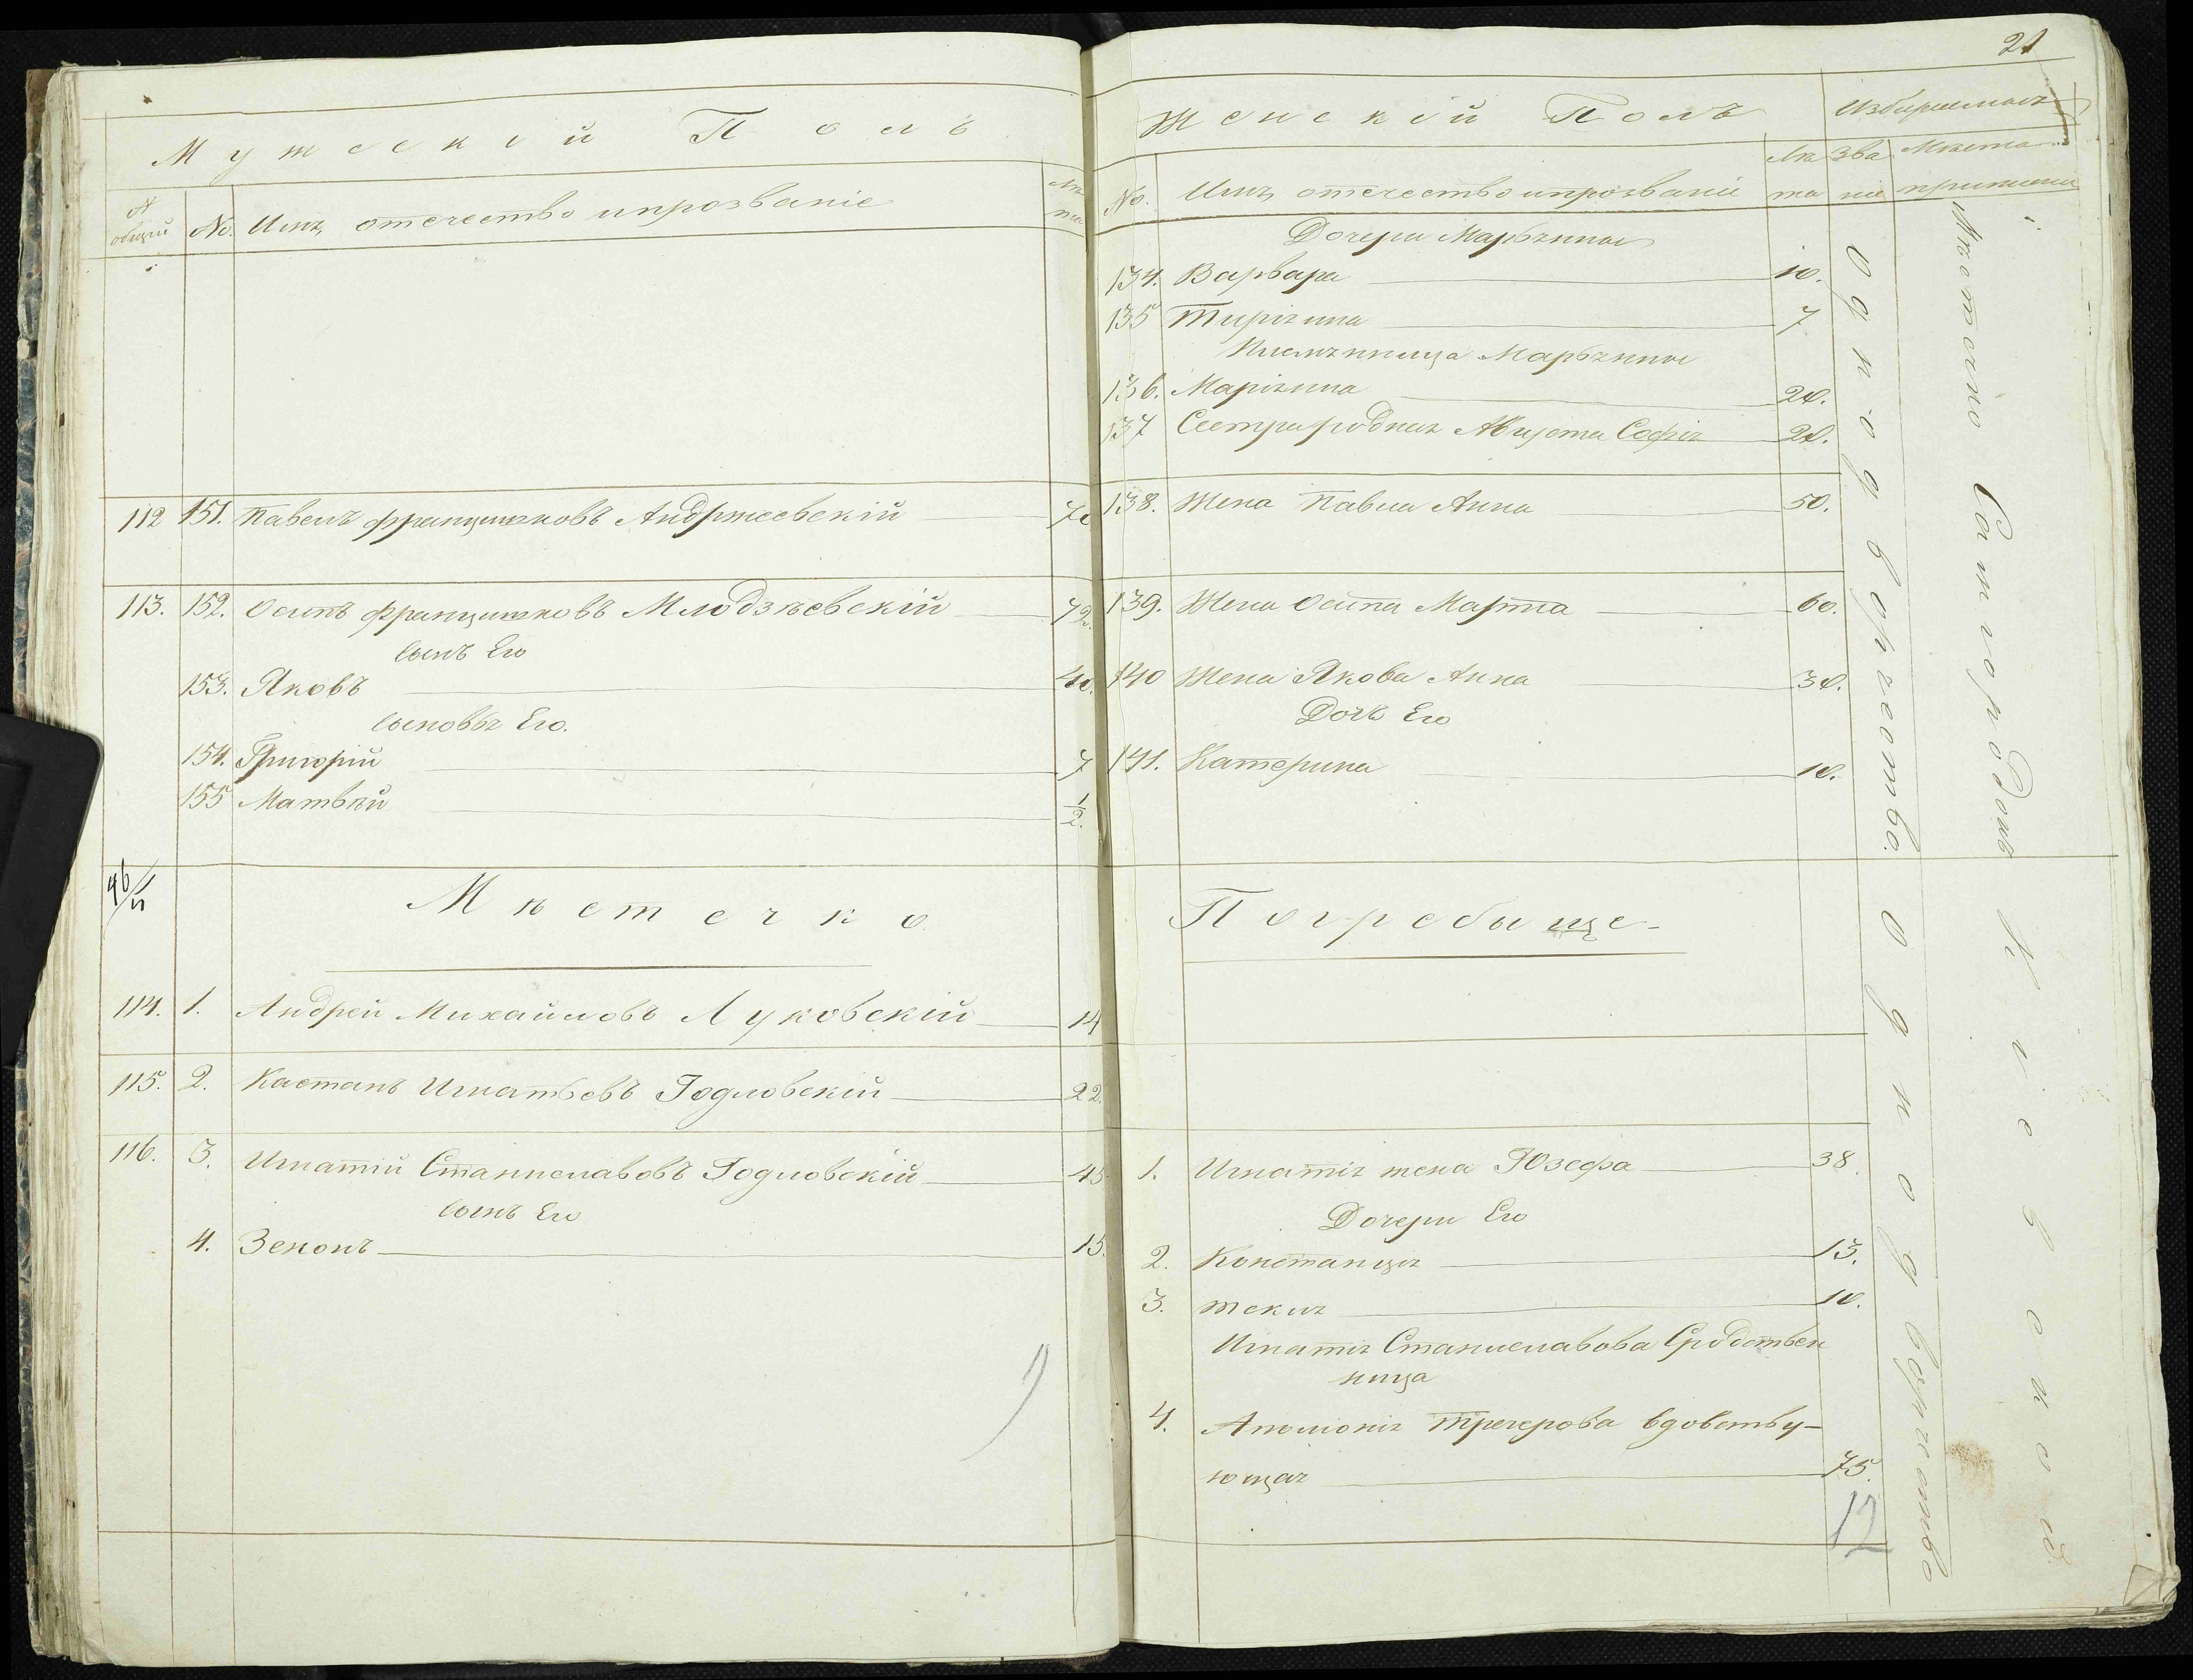 Мужескій Полъ
№ общій
№
Имя, отечество и прозваніе
Лѣта
112 151. Павелъ Францишковъ Андржеевскій 70
113. 152. Осипъ Францишковъ Млодзѣевскій 72.
сынъ Его
153. Яковъ 40.
сыновья Его.
154. Григорій 7
155 Матвѣй 1/2.
Мѣстечко
114. 1. Андрей Михайловъ Луковскій 14
115. 2. Каетанъ Игнатьевъ Годловскій 22.
116. 3. Игнатій Станиславовъ Годловскій 45
сынъ Его
4. Зенонъ 15.
21
Женскій Полъ
Избираемыя
№.
Имя, отечество и прозваніе
Лѣта
Званіе
Мѣста приписки
Дочери Марьянны
134. Варвара 10.
135 Тиріяна 7
Племянница Марьянны
136. Маріянна 20.
137 Сестра родная Августа Софія 20.
138. Жена Павла Анна 50.
139. Жена Осипа Марта 60.
140 Жена Якова Анна 30.
Дочь Его
141. Катерина 10.
Погребыще
1. Игнатія жена Юзефа 38.
Дочери Его
2. Констанція 13.
3. Текля 10.
Игнатія Станиславова Сродствен
ница
4. Аполонія Тречерова вдовству-
ющая 75.
12
Однодворчество.
Однодворчество
Мѣстечко Самгородокъ
Кіевской